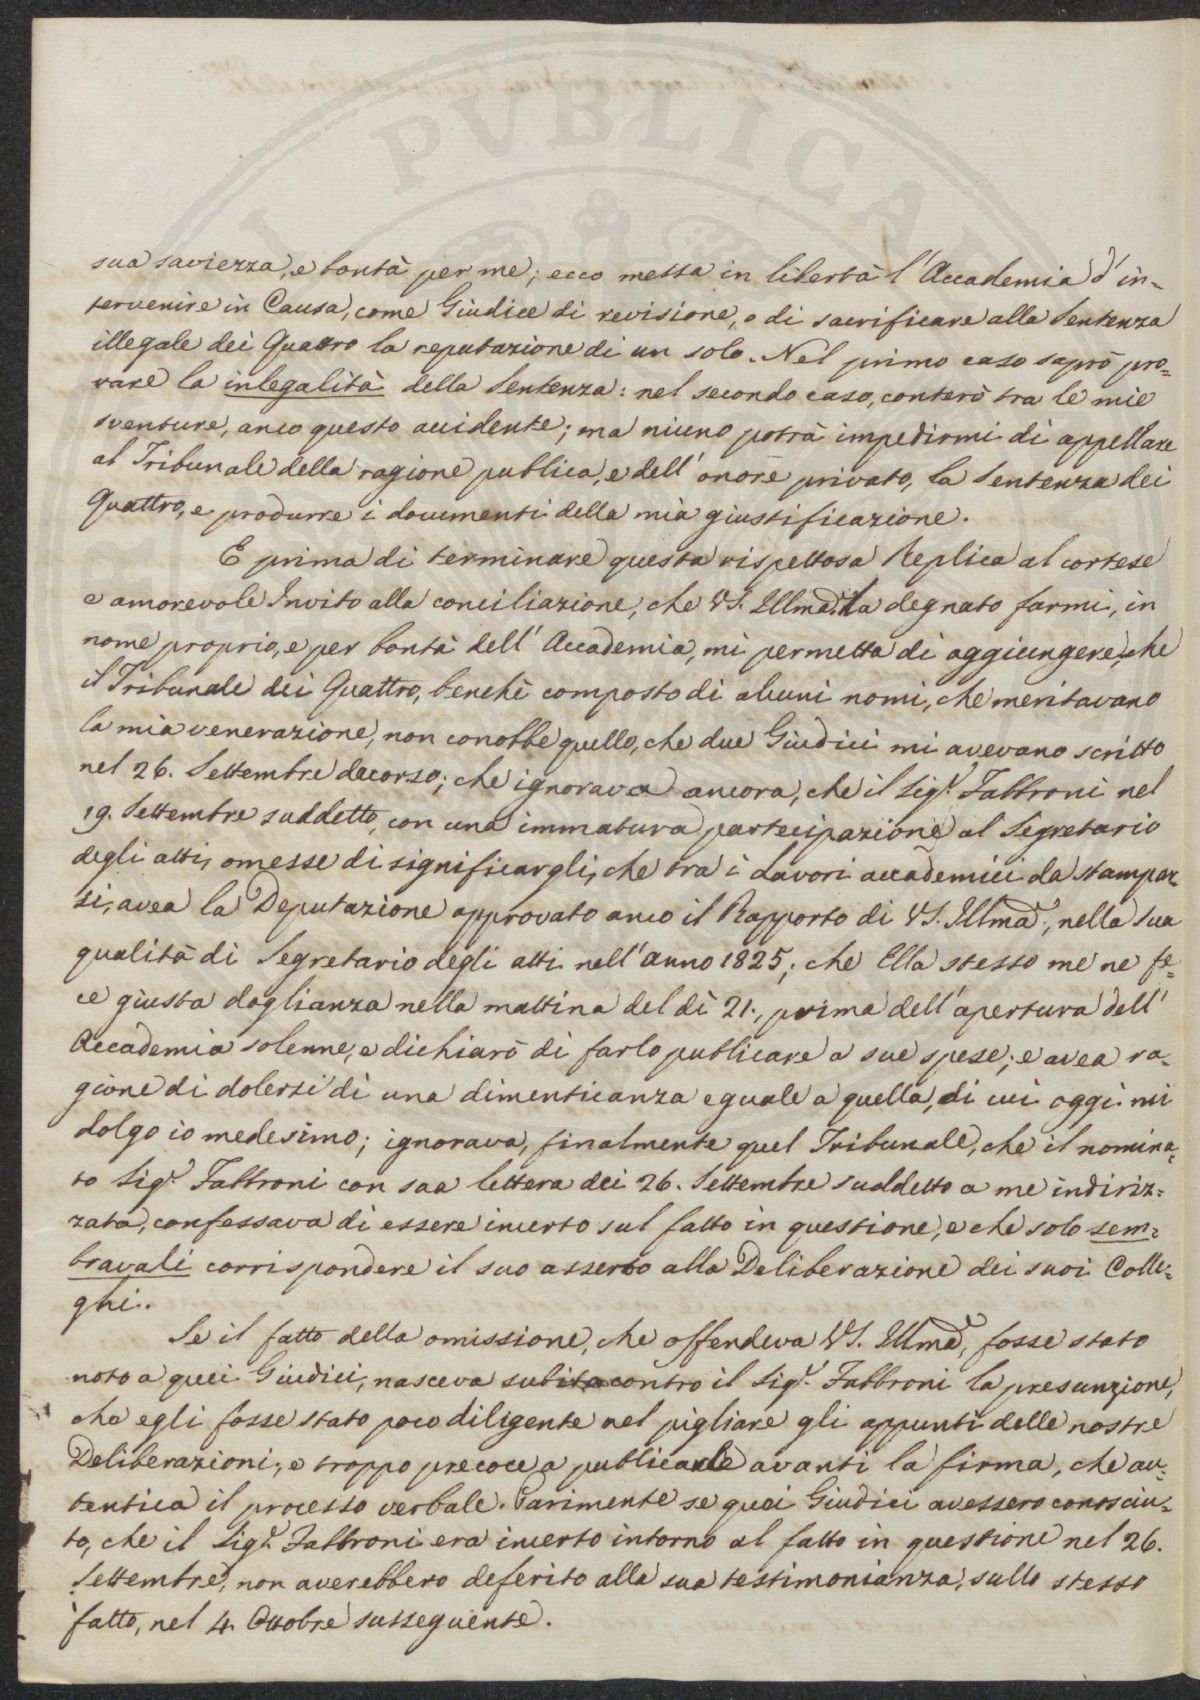 PVBLICA
sua saviezza, e bontà per me; ecco messa in libertà l'Accademia d'in=
tervenire in Causa, come Giudice di revisione, o di sacrificare alla Sentenza
illegale dei Quattro la reputazione di un solo. Nel primo caso saprò pro=
vare la inlegalità della Sentenza: nel secondo caso, conterò tra le mie
sventure, anco questo accidente; ma niuno potrà impedirmi di appellare
al Tribunale della ragione publica, e dell'onore privato, la Sentenza dei
Quattro, e produrre i documenti della mia giustificazione.
E prima di terminare questa rispettosa Replica al cortese
e amorevole Invito alla conciliazione, che VS. Illma. ha degnato farmi, in
nome proprio, e per bontà dell'Accademia, mi permetta di aggiungere, che
il Tribunale dei Quattro, benchè composto di alcuni nomi, che meritavano
la mia venerazione, non conobbe quello, che due Giudici mi avevano scritto
nel 26. Settembre decorso; che ignorava ancora, che il Sigr. Fabbroni nel
19. Settembre suddetto, con una immatura partecipazione al Segretario
degli atti, omesse di significargli, che tra i Lavori accademici da stampar=
si, avea la Deputazione approvato anco il Rapporto di VS. Illma., nella sua
qualità di Segretario degli atti nell'anno 1825; che Ella stesso me ne fe=
ce giusta doglianza nella mattina del dì 21., prima dell'apertura dell'
Accademia solenne, e dichiarò di farlo publicare a sue spese; e avea ra=
gione di dolersi di una dimenticanza eguale a quella, di cui oggi mi
dolgo io medesimo; ignorava, finalmente quel Tribunale, che il nomina=
to Sigr. Fabbroni con sua lettera dei 26. Settembre suddetto a me indiriz=
zata, confessava di essere incerto sul fatto in questione, e che solo sem=
bravali corrispondere il suo asserto alla Deliberazione dei suoi Colle=
ghi.
Se il fatto della omissione, che offendeva VS. Illma, fosse stato
noto a quei Giudici, nasceva subito contro il Sigr. Fabbroni la presunzione,
che egli fosse stato poco diligente nel pigliare gli appunti delle nostre
Deliberazioni, e troppo precoce a publicarle avanti la firma, che au=
tentica il processo verbale. Parimente se quei Giudici avessero conosciu=
to, che il Sigr. Fabbroni era incerto intorno al fatto in questione nel 26.
Settembre, non averebbero deferito alla sua testimonianza, sullo stesso
fatto, nel 4. Ottobre susseguente.